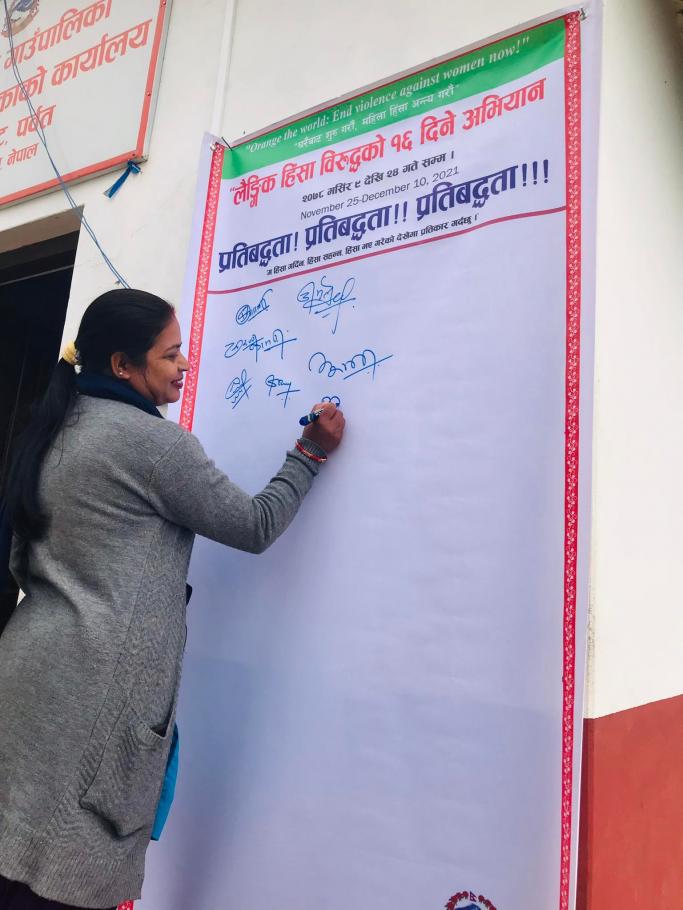 गाउँपालिका
को कार्यालय
पर्वत
नेपाल
"Orange the world: End violence against women now!"
"घरैबाट शुरु गरौं, महिला हिंसा अन्त्य गरौं"
"लैङ्गिक हिंसा विरुद्धको १६ दिने अभियान
२०७८ मंसिर ९ देखि २४ गते सम्म ।
November 25-December 10, 2021
प्रतिबद्धता! प्रतिबद्धता!! प्रतिबद्धता!!!
म हिंसा गर्दिन, हिंसा सहन्न, हिंसा भए गरेको देखेमा प्रतिकार गर्दछु ।